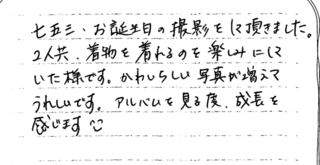 七五三・お誕生日の撮影をして頂きました。
2人共、着物を着れるのを楽しみにして
いた様です。かわいらしい写真が増えて
うれしいです。アルバムを見る度、成長を
感じます☺